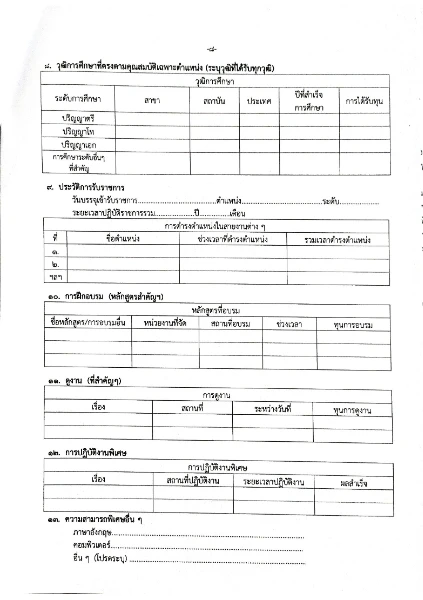 -๘-
๘. วุฒิการศึกษาที่ตรงตามคุณสมบัติเฉพาะตำแหน่ง (ระบุวุฒิที่ได้รับทุกวุฒิ)
วุฒิการศึกษา
ระดับการศึกษา สาขา สถาบัน ประเทศ ปีที่สำเร็จการศึกษา การได้รับทุน
ปริญญาตรี
ปริญญาโท
ปริญญาเอก
การศึกษาระดับอื่นๆ
ที่สำคัญ
๙. ประวัติการรับราชการ
วันบรรจุเข้ารับราชการ..............................ตำแหน่ง..............................ระดับ...............
ระยะเวลาปฏิบัติราชการรวม...............ปี............เดือน
การดำรงตำแหน่งในสายงานต่าง ๆ
ที่ ชื่อตำแหน่ง ช่วงเวลาที่ดำรงตำแหน่ง รวมเวลาดำรงตำแหน่ง
๑.
๒.
ฯลฯ
๑๐. การฝึกอบรม (หลักสูตรสำคัญๆ)
หลักสูตรที่อบรม
ชื่อหลักสูตร/การอบรมอื่น หน่วยงานที่จัด สถานที่อบรม ช่วงเวลา ทุนการอบรม
๑๑. ดูงาน (ที่สำคัญๆ)
การดูงาน
เรื่อง สถานที่ ระหว่างวันที่ ทุนการดูงาน
๑๒. การปฏิบัติงานพิเศษ
การปฏิบัติงานพิเศษ
เรื่อง สถานที่ปฏิบัติงาน ระยะเวลาปฏิบัติงาน ผลสำเร็จ
๑๓. ความสามารถพิเศษอื่น ๆ
ภาษาอังกฤษ............................................................
คอมพิวเตอร์............................................................
อื่น ๆ (โปรดระบุ) .......................................................